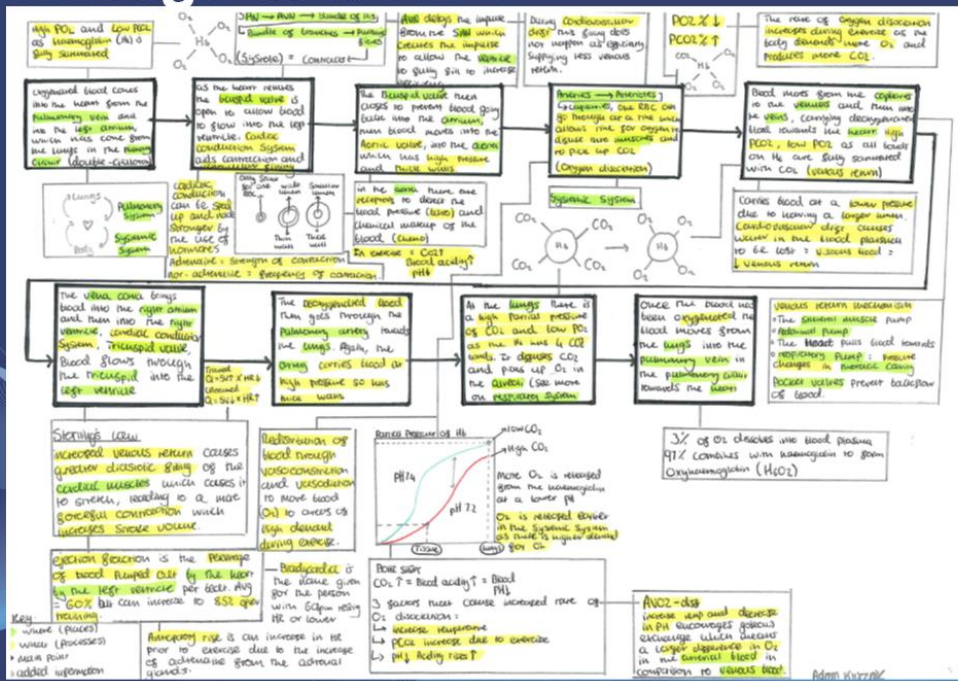 High PO2 and Low PCO2
as haemoglobin (Hb) is
fully saturated
O2
O2
Hb
O2
O2
SAN → AVN → Bundle of His
→ Bundle of branches →
(Systole) = Contract
AVN delays the impulse
from the SAN which
the impulse
to allow the ventricle
to fully fill to increase
During cardiovascular
drift this
not happen as efficiently
supplying less venous
return.
PO2 % ↓
PCO2 % ↑
Hb
The rate of oxygen dissociation
increases during exercise as the
body demands more O2 and
produces more CO2.
Oxygenated blood comes
into the heart from the
pulmonary vein and
into the left atrium,
which has come from
the lungs in the
circuit (double-
as the heart
the bicuspid valve is
open to allow blood
to flow into the left
ventricle. Cardiac
conduction System
aids contraction and
The bicuspid valve then
closes to prevent blood going
back into the atrium,
then blood moves into the
Aortic valve, into the aorta
which has high pressure
and thick walls.
Arteries → Arterioles
→ Capillaries, one RBC can
go through at a time which
allows time for oxygen to
diffuse into muscles and
to pick up CO2
(Oxygen dissociation)
Blood moves from the capillaries
to the venules and then into
the veins, carrying deoxygenated
blood towards the heart. High
PCO2, low PO2 as all bonds
on Hb are fully saturated
with CO2 (venous return)
Lungs
Body
Pulmonary
System
Systemic
System
cardiac
conduction
can be sped
up and made
stronger by
the use of
hormones
Adrenaline = Strength of contraction
nor-adrenaline = frequency of contraction
Only space
for one
RBC
wide
lumen
Smaller
lumen
Thin
wall
Thick
wall
in the aorta there are
receptors to detect the
blood pressure (baro) and
chemical makeup of the
blood (Chemo)
In exercise = CO2↑
Blood acidity↑
pH↓
Systemic System
CO2
CO2
CO2
CO2
Hb
O2
O2
O2
O2
Hb
Carries blood at a lower pressure
due to having a larger lumen.
Cardiovascular drift causes
water in the blood plasma
to be lost = viscous blood =
↓ venous return
The vena cava brings
blood into the right atrium
and then into the right
ventricle, (cardiac conduction
System, Tricuspid valve,
Blood flows through
the tricuspid into the
left ventricle
Trained
Q=SV↑ x HR↓
Untrained
Q=SV↓ x HR↑
The deoxygenated blood
then goes through the
pulmonary artery towards
the lungs. Again, the
artery carries blood at
high pressure so has
thick walls
At the lungs there is
a high partial pressure
of CO2 and low PO2
as the Hb has 4 CO2
bonds. It diffuses CO2
and picks up O2 in
the alveoli (see more
on respiratory system
Once the blood has
been oxygenated the
blood moves from
the lungs into the
pulmonary vein in
the pulmonary circuit
towards the heart
venous return mechanism
• The skeletal muscle pump
• The Heart pulls blood towards
• respiratory Pump: Pressure
changes in thoracic cavity
Pocket valves prevent backflow
of blood.
Starling's Law
increased venous return causes
greater diastolic filling of the
cardiac muscles which causes it
to stretch, leading to a more
forceful contraction which
increases stroke volume.
Redistribution of
blood through
vasoconstriction
and vasodilation
to move blood
(O2) to areas of
high demand
during exercise.
Partial Pressure of Hb
→ low CO2
→ High CO2
pH7.4
pH 7.2
Tissue
Lungs
More O2 is released
from the haemoglobin
at a lower pH
O2 is released earlier
in the Systemic System
as there is higher demand
for O2
3% of O2 dissolves into blood plasma
97% combines with haemoglobin to form
Oxyhaemoglobin (HbO2)
ejection fraction is the percentage
of blood pumped out by the heart
by the left ventricle per beat. Avg
= 60% but can increase to 85% after
training.
Bradycardia is
the name given
for the person
with 60bpm resting
HR or lower
Anticipatory rise is an increase in HR
prior to exercise due to the increase
of adrenaline from the adrenal
glands.
Bohr Shift
CO2 ↑ = Blood acidity ↑ = Blood
pH↓
3 factors that cause increased rate of
O2 dissociation:
↳ increase temperature
↳ pCO2 increase due to exercise
↳ pH↓ Acidity rises↑
AVO2-diff
increase temp and decrease
in PH encourages gaseous
exchange which means
a larger difference in O2
in the arterial blood in
comparison to venous blood.
Key
where (places)
(Processes)
main point
added information